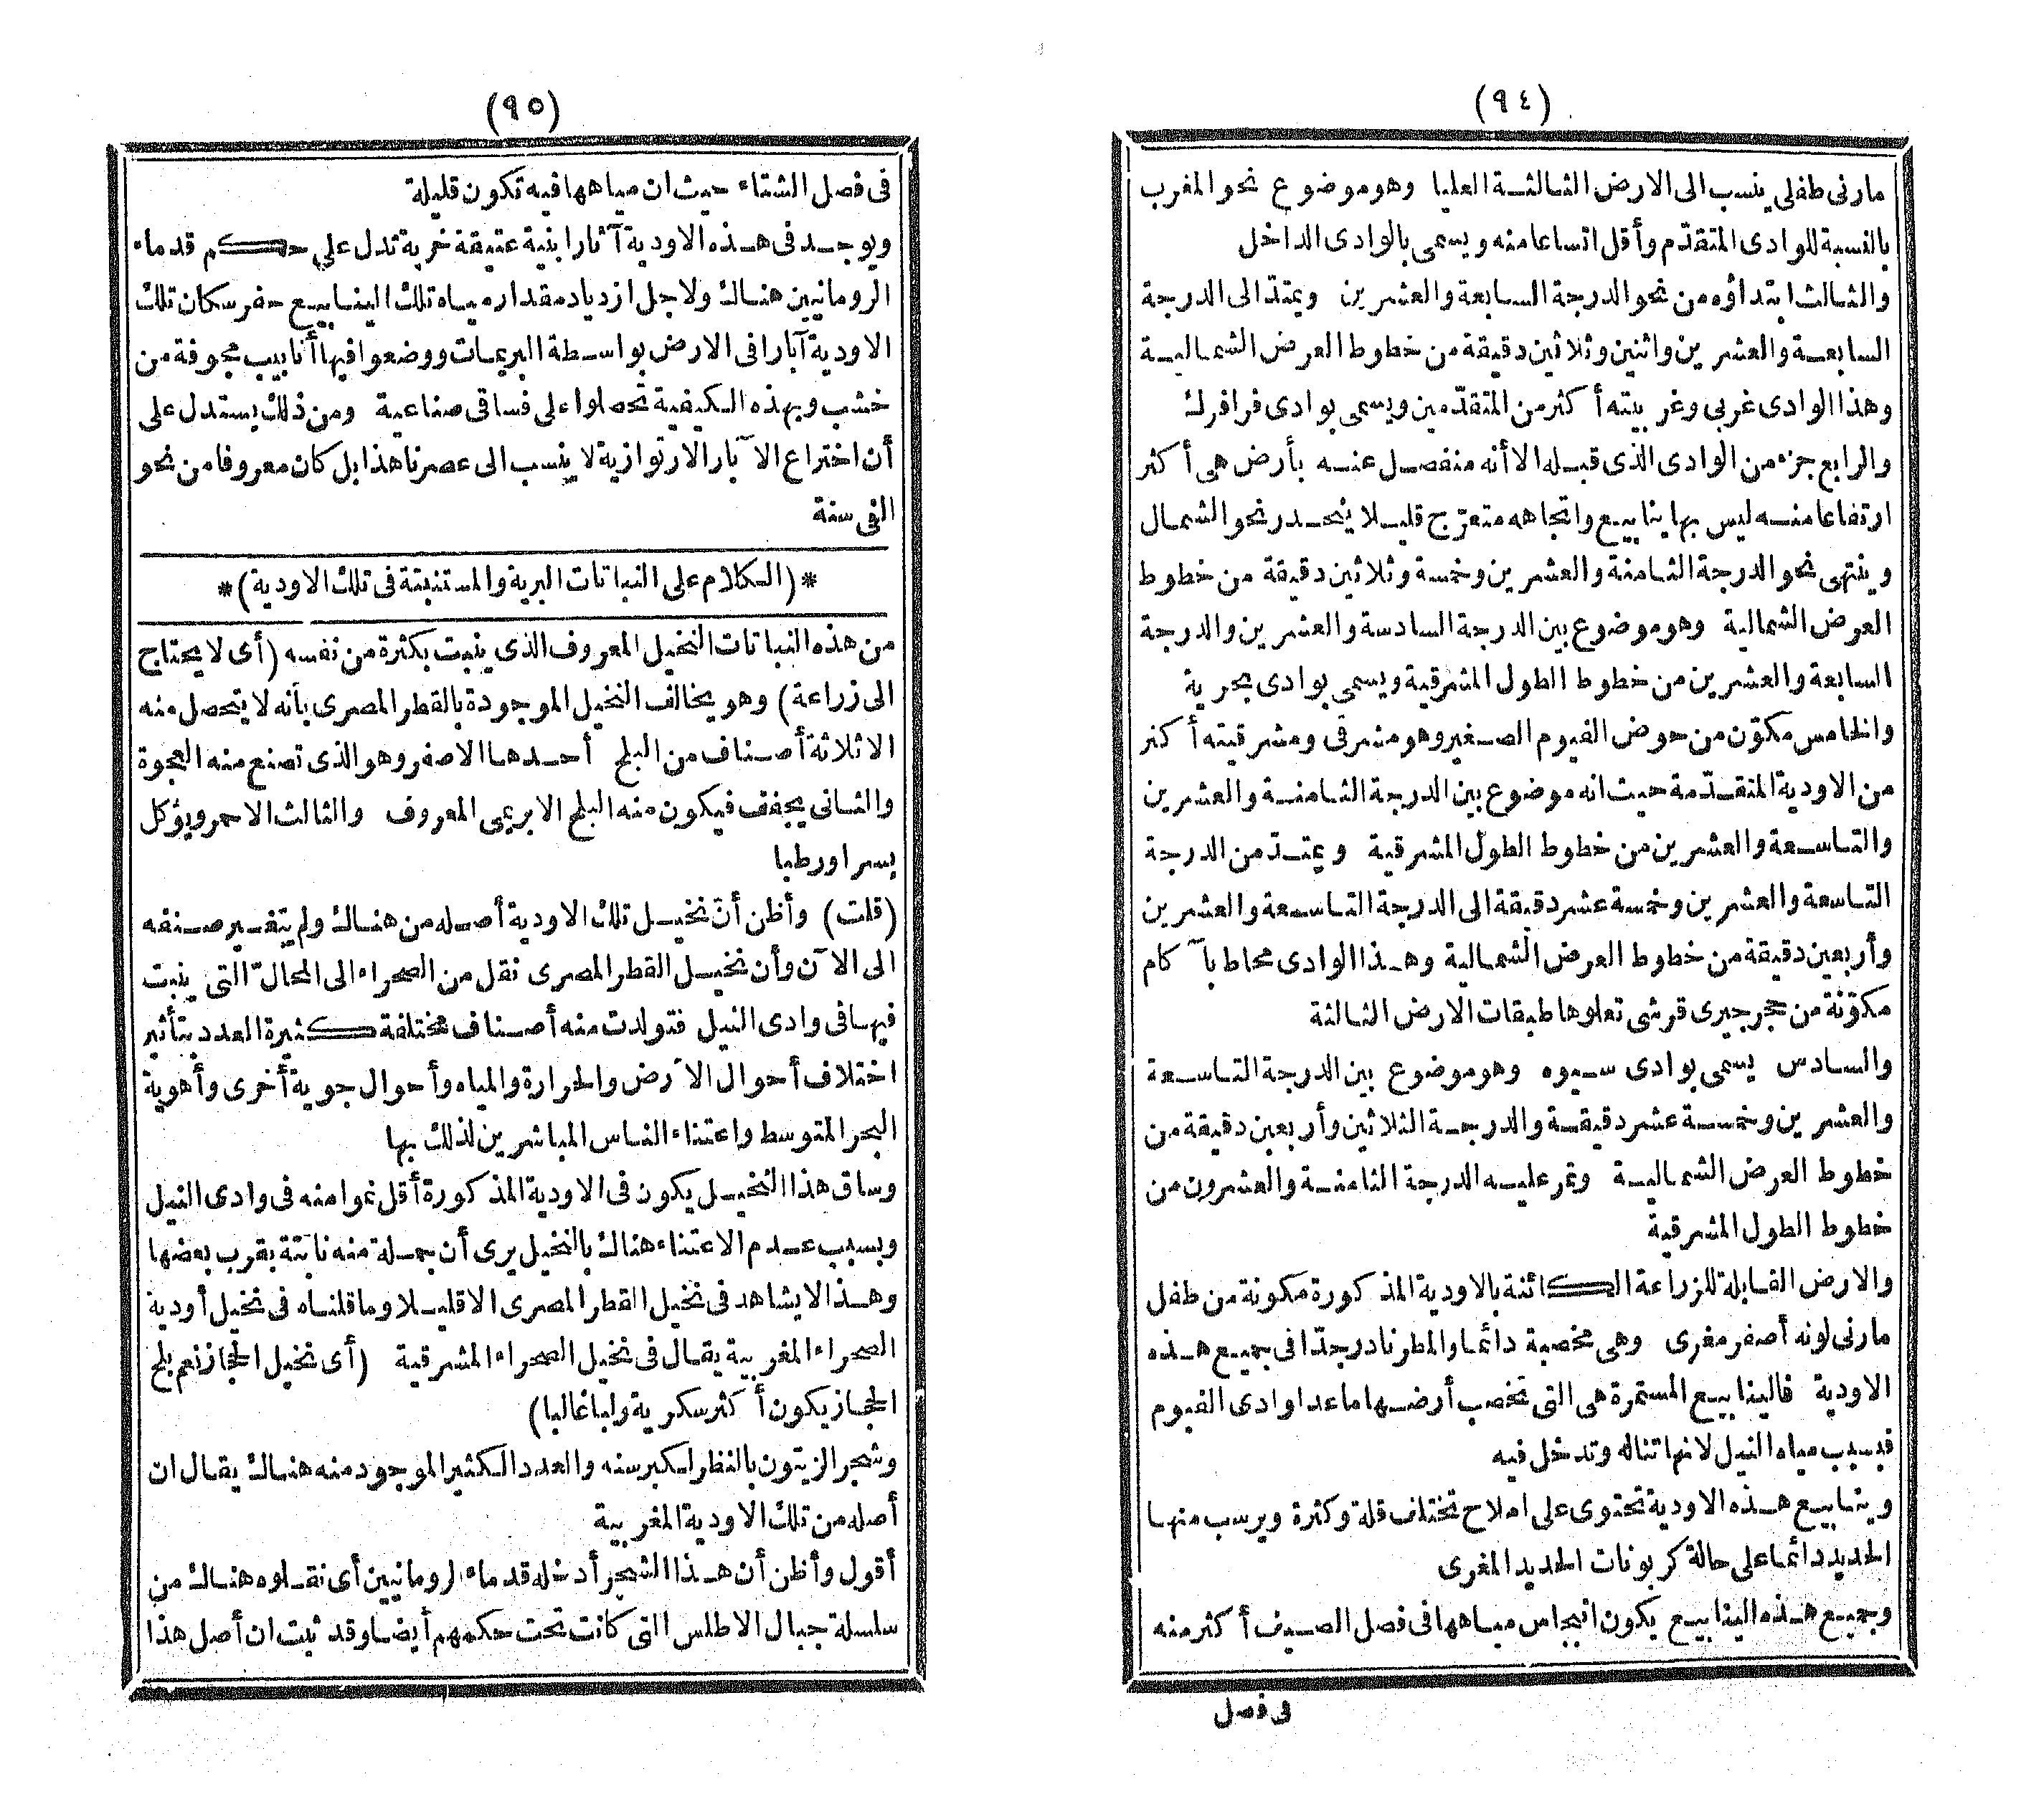 (٩٤)
مارنى طفلى ينسب الى الارض الثالثة العليا وهو موضوع نحو المغرب
بالنسبة للوادى المتقدّم وأقل اتساعا منه ويسمى بالوادى الداخل
والثالث ابتداؤه من نحو الدرجة السابعة والعشرين ويمتدّ الى الدرجة
السابعة والعشرين واثنين وثلاثين دقيقة من خطوط العرض الشمالية
وهذا الوادى غربى وغربيته أكثر من المتقدّمين ويسمى بوادى فرافرك
والرابع جزء من الوادى الذى قبله الا أنه منفصل عنه بأرض هى أكثر
ارتفاعا منه ليس بها ينابيع واتجاهه متعرّج قليلا ينحدر نحو الشمال
وينتهى نحو الدرجة الثامنة والعشرين وخمسة وثلاثين دقيقة من خطوط
العرض الشمالية وهو موضوع بين الدرجة السادسة والعشرين والدرجة
السابعة والعشرين من خطوط الطول المشرقية ويسمى بوادى بحرية
والخامس مكوّن من حوض الفيوم الصغير وهو مشرقى ومشرقيته أكثر
من الاودية المتقدّمة حيث انه موضوع بين الدرجة الثامنة والعشرين
والتاسعة والعشرين من خطوط الطول المشرقية ويمتدّ من الدرجة
التاسعة والعشرين وخمسة عشر دقيقة الى الدرجة التاسعة والعشرين
وأربعين دقيقة من خطوط العرض الشمالية وهذا الوادى محاط بآكام
مكوّنة من حجر جيرى قرشى تعلوها طبقات الارض الثالثة
والسادس يسمى بوادى سيوه وهو موضوع بين الدرجة التاسعة
والعشرين وخمسة عشر دقيقة والدرجة الثلاثين وأربعين دقيقة من
خطوط العرض الشمالية وتمر عليه الدرجة الثامنة والعشرون من
خطوط الطول المشرقية
والارض القابلة للزراعة الكائنة بالاودية المذكورة مكونة من طفل
مارنى لونه أصفر مغرى وهى مخصبة دائما والمطر نادر جدّا فى جميع هذه
الاودية فالينابيع المستمرة هى التى تخصب أرضها ما عدا وادى الفيوم
فبسبب مياه النيل لانها تناله وتدخل فيه
وينابيع هذه الاودية تحتوى على املاح تختلف قلة وكثرة ويرسب منها
الحديد دائما على حالة كربونات الحديد المغرى
وجميع هذه الينابيع يكون انبجاس مياهها فى فصل الصيف أكثر منه
فى فصل
(٩٥)
فى فصل الشتاء حيث ان مياهها فيه تكون قليلة
ويوجد فى هذه الاودية آثار ابنية عتيقة خربة تدل على حكم قدماء
الرومانيين هناك ولاجل ازدياد مقدار مياه تلك الينابيع حفر سكان تلك
الاودية آبارا فى الارض بواسطة البريمات ووضعوا فيها أنابيب مجوفة من
خشب وبهذه الكيفية تحصلوا على فساقى صناعية ومن ذلك يستدل على
أن اختراع الآبار الارتوازية لا ينسب الى عصرنا هذا بل كان معروفا من نحو
الفى سنة
*(الكلام على النباتات البرية والمستنبتة فى تلك الاودية)*
من هذه النباتات النخيل المعروف الذى ينبت بكثرة من نفسه (أى لا يحتاج
الى زراعة) وهو يخالف النخيل الموجودة بالقطر المصرى بأنه لا يتحصل منه
الا ثلاثة أصناف من البلح أحدها الأصفر وهو الذى تصنع منه العجوة
والثانى يجفف فيكون منه البلح الابريمى المعروف والثالث الاحمر ويؤكل
بسرا ورطبا
(قلت) وأظن أنّ نخيل تلك الاودية أصله من هناك ولم يتغير صنفه
الى الآن وأن نخيل القطر المصرى نقل من الصحراء الى المحالّ التى ينبت
فيها فى وادى النيل فتولدت منه أصناف مختلفة كثيرة العدد بتأثير
اختلاف أحوال الأرض والحرارة والمياه وأحوال جوية أخرى وأهوية
البحر المتوسط واعتناء الناس المباشرين لذلك بها
وساق هذا النخيل يكون فى الاودية المذكورة أقل نموا منه فى وادى النيل
وبسبب عدم الاعتناء هناك بالنخيل يرى أن جملة منه نابتة بقرب بعضها
وهذا لا يشاهد فى نخيل القطر المصرى الا قليلا وما قلناه فى نخيل أودية
الصحراء المغربية يقال فى نخيل الصحراء المشرقية (أى نخيل الحجاز نعم بلح
الحجاز يكون أكثر سكرية ولبا غالبا)
وشجر الزيتون بالنظر لكبر سنه والعدد الكثير الموجود منه هناك يقال ان
أصله من تلك الاودية المغربية
أقول وأظن أن هذا الشجر أدخله قدماء الرومانيين أى نقلوه هناك من
سلسلة جبال الاطلس التى كانت تحت حكمهم أيضا وقد ثبت ان أصل هذا